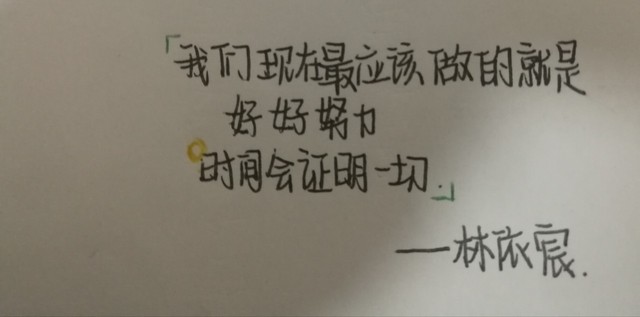 「我们现在最应该做的就是
好好努力
时间会证明一切.」
——林依宸.